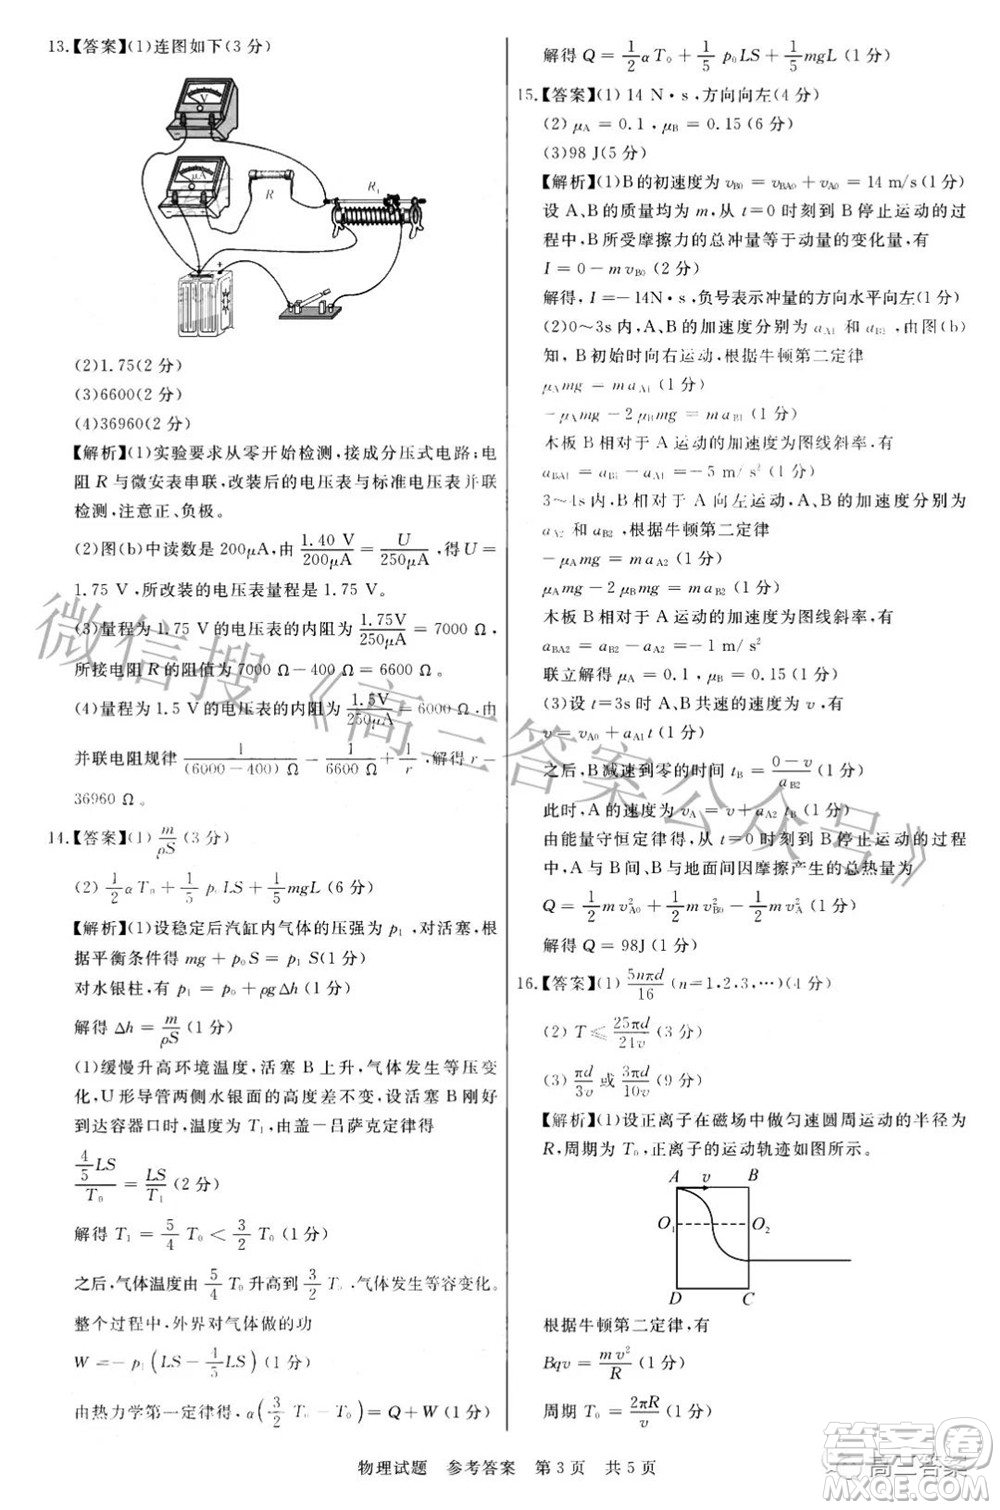 13.【答案】(1)连图如下(3分)
V
μA
R
R₁
(2)1.75(2分)
(3)6600(2分)
(4)36960(2分)
【解析】(1)实验要求从零开始检测,接成分压式电路;电
阻R与微安表串联,改装后的电压表与标准电压表并联
检测,注意正、负极。
(2)图(b)中读数是200μA,由 1.40 V/200μA = U/250μA ,得U=
1.75 V,所改装的电压表量程是1.75 V。
(3)量程为1.75 V的电压表的内阻为 1.75V/250μA = 7000 Ω,
所接电阻R的阻值为7000 Ω-400 Ω=6600 Ω。
(4)量程为1.5 V的电压表的内阻为 1.5V/250μA = 6000 Ω,由
并联电阻规律 1/((6000-400) Ω) = 1/(6600 Ω) + 1/r ,解得r=
36960 Ω。
14.【答案】(1) m/ρS (3分)
(2) 1/2 αT₀ + 1/5 p₀LS + 1/5 mgL (6分)
【解析】(1)设稳定后汽缸内气体的压强为p₁,对活塞,
根据平衡条件得 mg+p₀S=p₁S(1分)
对水银柱,有 p₁=p₀+ρgΔh(1分)
解得 Δh = m/ρS (1分)
(1)缓慢升高环境温度,活塞B上升,气体发生等压变
化,U形导管两侧水银面的高度差不变,设活塞B刚好
到达容器口时,温度为T₁,由盖-吕萨克定律得
(4/5 LS)/T₀ = LS/T₁ (2分)
解得 T₁ = 5/4 T₀ < 3/2 T₀(1分)
之后,气体温度由 5/4 T₀升高到 3/2 T₀,气体发生等容变化。
整个过程中,外界对气体做的功
W=-p₁(LS-4/5LS)(1分)
由热力学第一定律得,α(3/2 T₀-T₀)=Q+W(1分)
解得 Q = 1/2 αT₀ + 1/5 p₀LS + 1/5 mgL(1分)
15.【答案】(1)14 N·s,方向向左(4分)
(2)μA=0.1,μB=0.15(6分)
(3)98 J(5分)
【解析】(1)B的初速度为vB0=vBA0+vA0=14 m/s(1分)
设A、B的质量均为m,从t=0时刻到B停止运动的过
程中,B所受摩擦力的总冲量等于动量的变化量,有
I=0-mvB0(2分)
解得,I=-14N·s,负号表示冲量的方向水平向左(1分)
(2)0~3s内,A、B的加速度分别为aA1和aB2,由图(b)
知,B初始时向右运动,根据牛顿第二定律
μAmg=maA1(1分)
-μAmg-2μBmg=maB1(1分)
木板B相对于A运动的加速度为图线斜率,有
aBA1=aB1-aA1=-5 m/s²(1分)
3~4s内,B相对于A向左运动,A、B的加速度分别为
aA2和aB2,根据牛顿第二定律
-μAmg=maA2(1分)
μAmg-2μBmg=maB2(1分)
木板B相对于A运动的加速度为图线斜率,有
aBA2=aB2-aA2=-1 m/s²
联立解得μA=0.1,μB=0.15(1分)
(3)设t=3s时A、B共速的速度为v,有
v=vA0+aA1t(1分)
之后,B减速到零的时间tB= (0-v)/aB2 (1分)
此时,A的速度为vA=v+aA2tB(1分)
由能量守恒定律得,从t=0时刻到B停止运动的过程
中,A与B间、B与地面间因摩擦产生的总热量为
Q = 1/2 mv²A0 + 1/2 mv²B0 - 1/2 mv²A(1分)
解得Q=98J(1分)
16.【答案】(1) 5nπd/16 (n=1,2,3,…)(4分)
(2) T ⩽ 25πd/24v (3分)
(3) πd/3v 或 3πd/10v (9分)
【解析】(1)设正离子在磁场中做匀速圆周运动的半径为
R,周期为T₀,正离子的运动轨迹如图所示。
A v B
O₁ O₂
D C
根据牛顿第二定律,有
Bqv = mv²/R (1分)
周期T₀ = 2πR/v (1分)
物理试题 参考答案 第3页 共5页
微信搜《高三答案公众号》
答案圈
高三答案
MXQE.COM